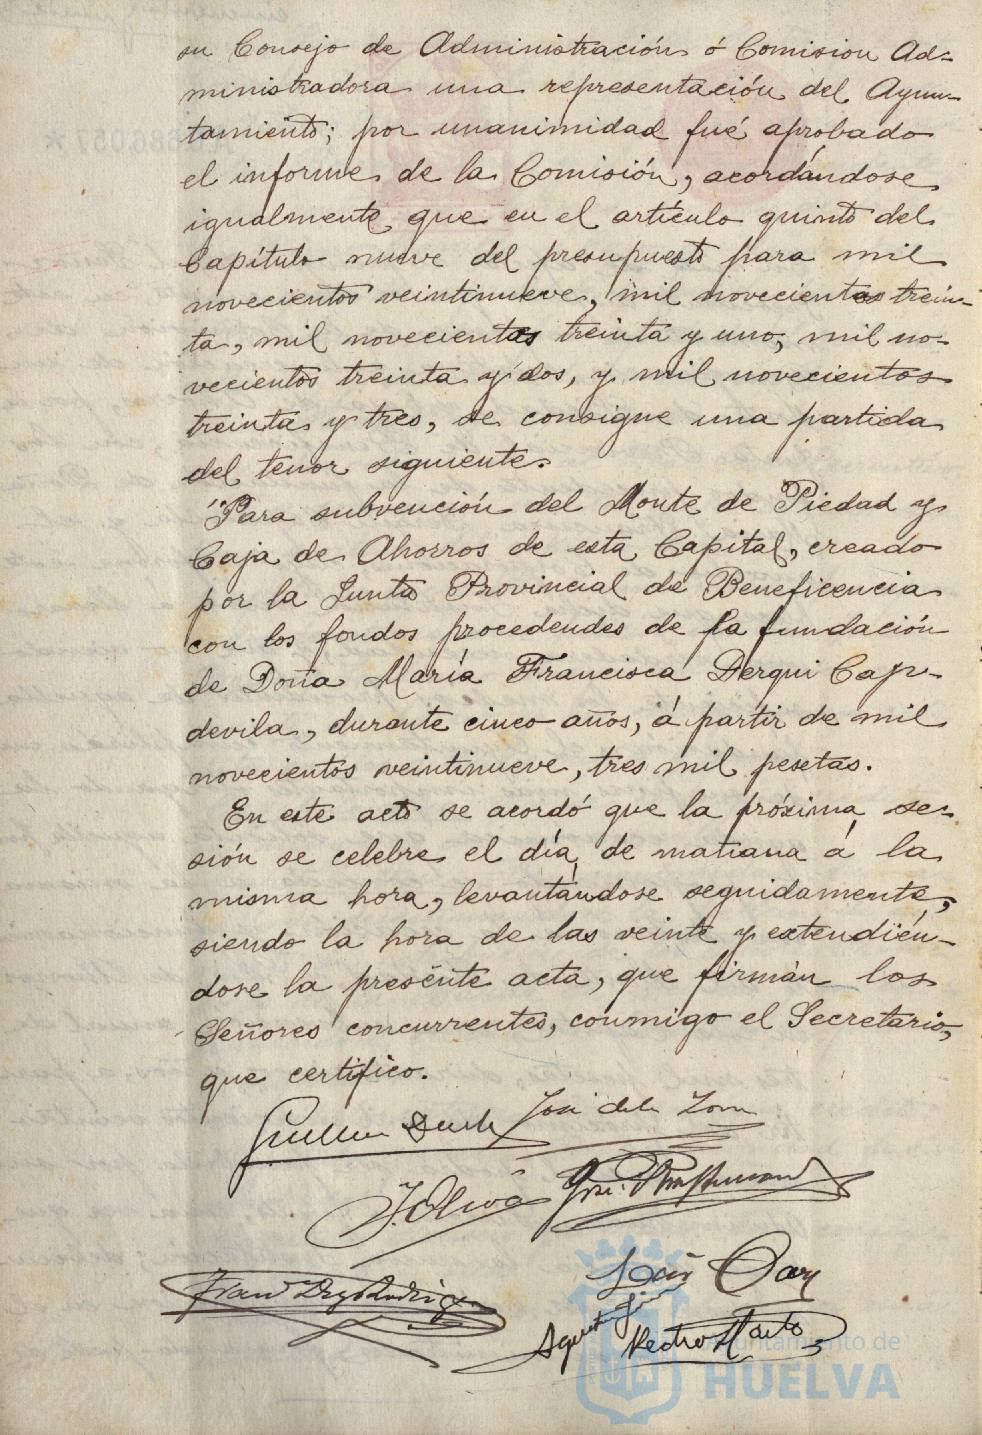 su Consejo de Administración ó Comision Ad-
ministradora una representación del Ayun-
tamiento; por unanimidad fué aprobado
el informe de la Comisión, acordándose
igualmente que en el artículo quinto del
Capítulo nueve del presupuesto para mil
novecientos veintinueve, mil novecientos trein-
ta, mil novecientos treinta y uno, mil no-
vecientos treinta y dos, y mil novecientos
treinta y tres, se consigne una partida
del tenor siguiente.
"Para subvención del Monte de Piedad y
Caja de Ahorros de esta Capital, creado
por la Junta Provincial de Beneficencia
con los fondos procedendes de la fundación
de Doña María Francisca Dergui Cap-
devila, durante cinco años, á partir de mil
novecientos veintinueve, tres mil pesetas.
En este acto se acordó que la próxima se-
sión se celebre el día de mañana á la
misma hora, levantándose seguidamente,
siendo la hora de las veinte y extendién-
dose la presente acta, que firmán los
Señores concurrentes, conmigo el Secretario,
que certifico.
José de la
J. Oliva
Pedro
Ayuntamiento de
HUELVA